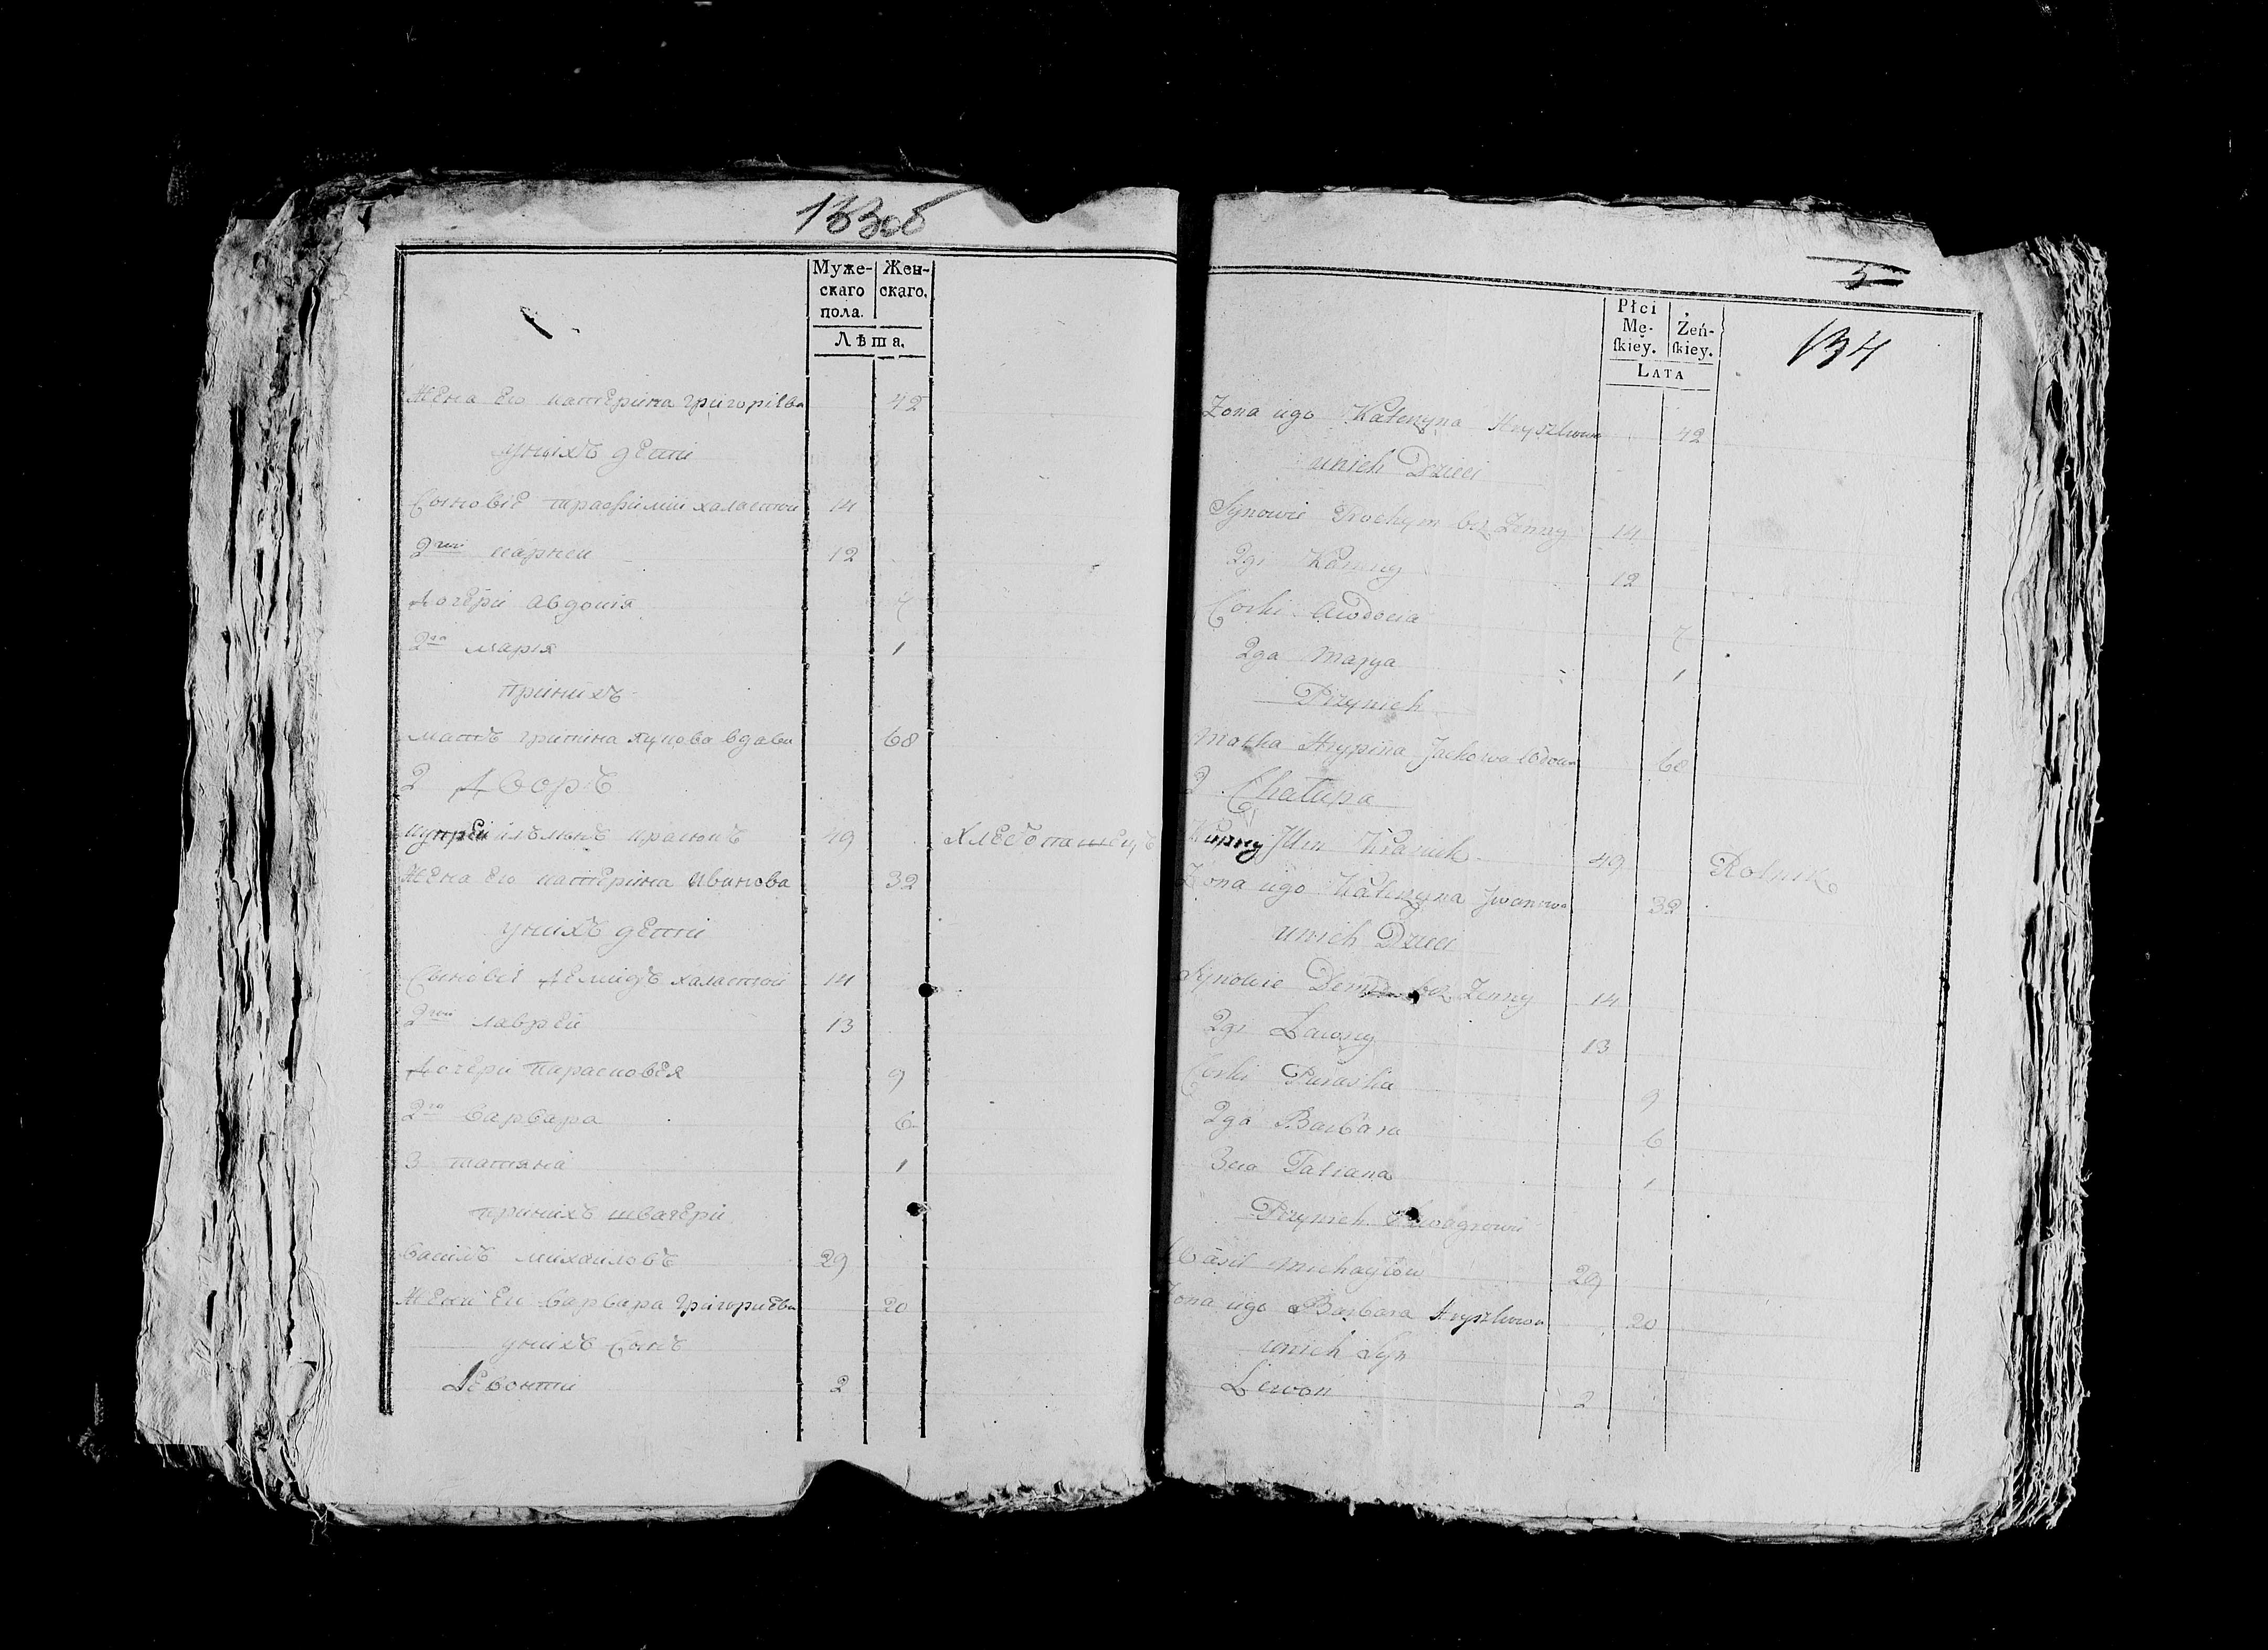 133об
Муже- Жен-
скаго скаго.
пола.
Лѣта.
Жена его катерина григоріева 42
униихъ дети
Сыновiе трафимiи халастои 14
2гои карнеи 12
дочери авдотiя 7
2га марiя 1
приних
мать грипина яцкова вдава 68
2 Дворъ
купреи илъинъ 49 хлебопашецъ
Жена его катерина иванова 32
униихъ дети
Сыновiе демидъ халастои 14
2гои лавреи 13
дочери парасковея 9
2га варвара 6
3 татяна 1
принихъ швагери
василь михаиловъ 29
жена ег варвара григориева 20
униихъ сынъ
Левонти 2
5
134
Płci
Mę- Żeń-
skiey. skiey.
LATA
Zona iego Katerzyna Hryszkowa 42
unich Dzieci
Synowie Trochym bez Zenny 14
2gi Karniey 12
Corki Awdocia 7
2ga Marya 1
Przynich
Matka Hrypina Jackowa Wdowa 68
2 Chałupa
Kuprey Ilin 49 Rolnik
Zona iego Katerzyna Jwanowa 32
unich Dzieci
Synowie Demid bez Zenny 14
2gi Lawrey 13
Corki Paraska 9
2ga Barbara 6
3cia Tatiana 1
Przynich Szwagrowie
Wasil Michayłow 29
Zona iego Barbara Hryszkowa 20
unich Syn
Lewon 2